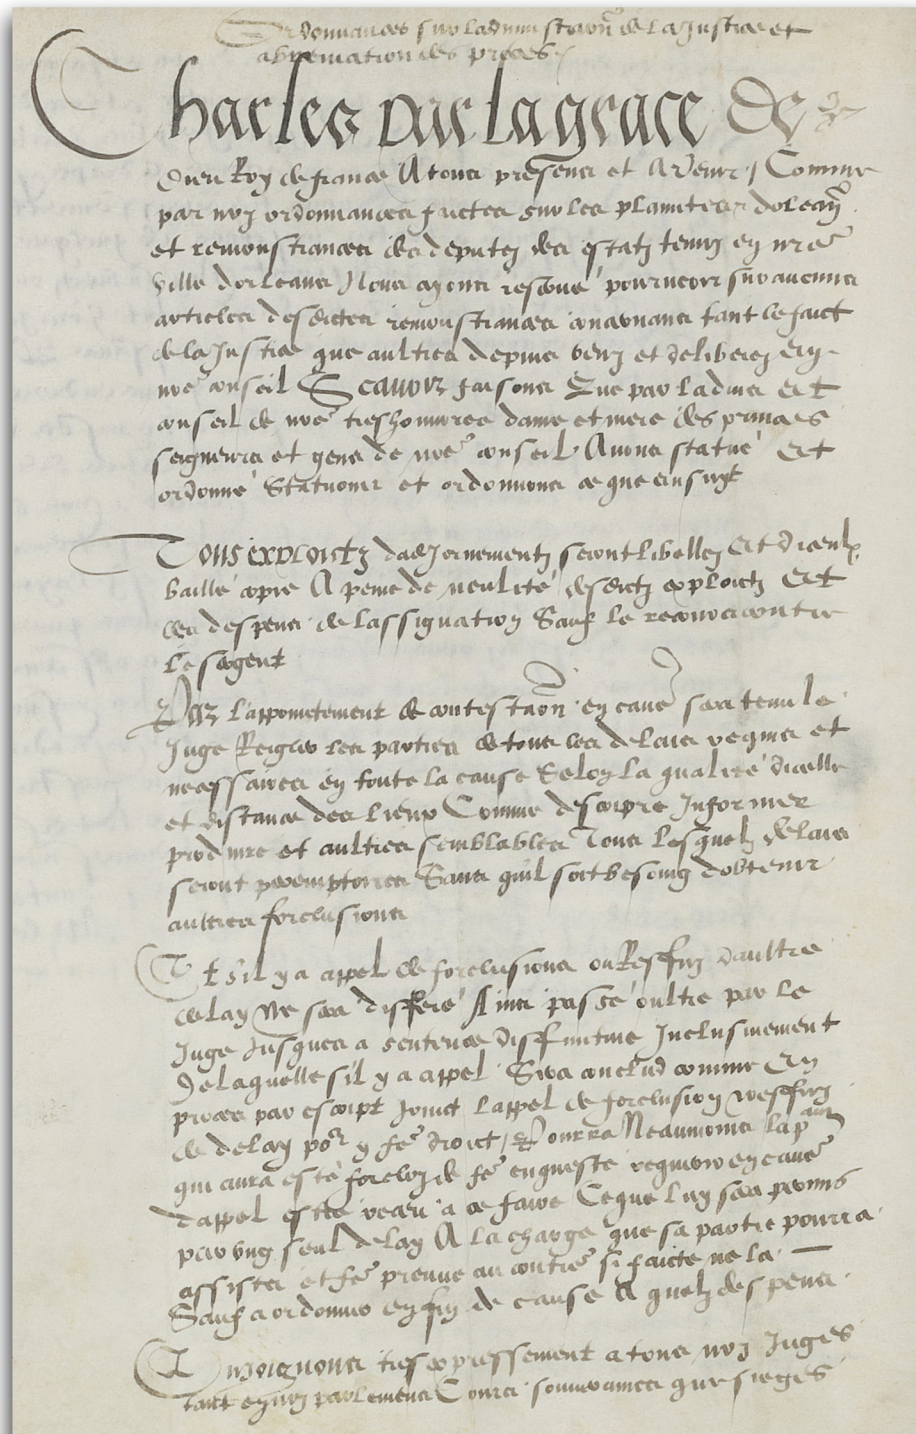 Ordonnances sur ladminístraōn de la Justice et
abbreviation des proces.
Charles par la grace de
dieu Roy de france A tous presens et Advenir / Comme
par noz ordonnances faictes sur les plainctes doleanc̄
et remonstrances des deputez des estatz tenuz en nr̄e
ville dorleans Nous ayons reservé pourveoir sur aucuns
articles desdictes remonstrances concernans tant le faict
de la Justice que aultres depuis veuz et deliberez en
nr̄e conseil Scavoir faisons Que par ladvis Et
conseil de nr̄e treshonnoree dame et mere des princes
seigneurs et gens de nr̄e conseil Avons statué Et
ordonné Statuons et ordonnons ce que ensuyt
Tous exploictz dadjornementz seront libellez Et diceulx
baillé copie A peine de nullité desdictz exploictz Et
des despens de lassignation Sauf le recours contre
le sergent
Par lappoinctement de contestaōn en cause sera tenu le
Juge Reigler les parties de tous les delais requis et
necessaires en toute la cause Selon la qualité dicelle
et distance des lieux Comme descripre Informer
produire et aultres semblables Tous lesquelz delais
seront peremptoires Sans quil soit besoing dobtenir
aultres forclusions
Et sil y a appel de forclusions ou Reffuz daultre
delay Ne sera differé Ains passé oultre par le
Juge Jusques a sentence diffinitive Inclusivement
De laquelle sil y a appel Sera conclud comme En
proces par escript Joinct lappel de forclusion reffuz
de delay por y fē droict / Pourra Neaumoins la partie
qui aura esté forcloz de fē enqueste requerir en cause
dappel estre receu a ce faire Ce que luy sera permis
par ung seul delay A la charge que sa partie pourra
assister et fē preuve au contrē si faicte ne la
Sauf a ordonner en fin de cause A quelz despens
Enjoignons tresexpressement a tous noz Juges
tant en noz parlemens Cours souveraines que sieges